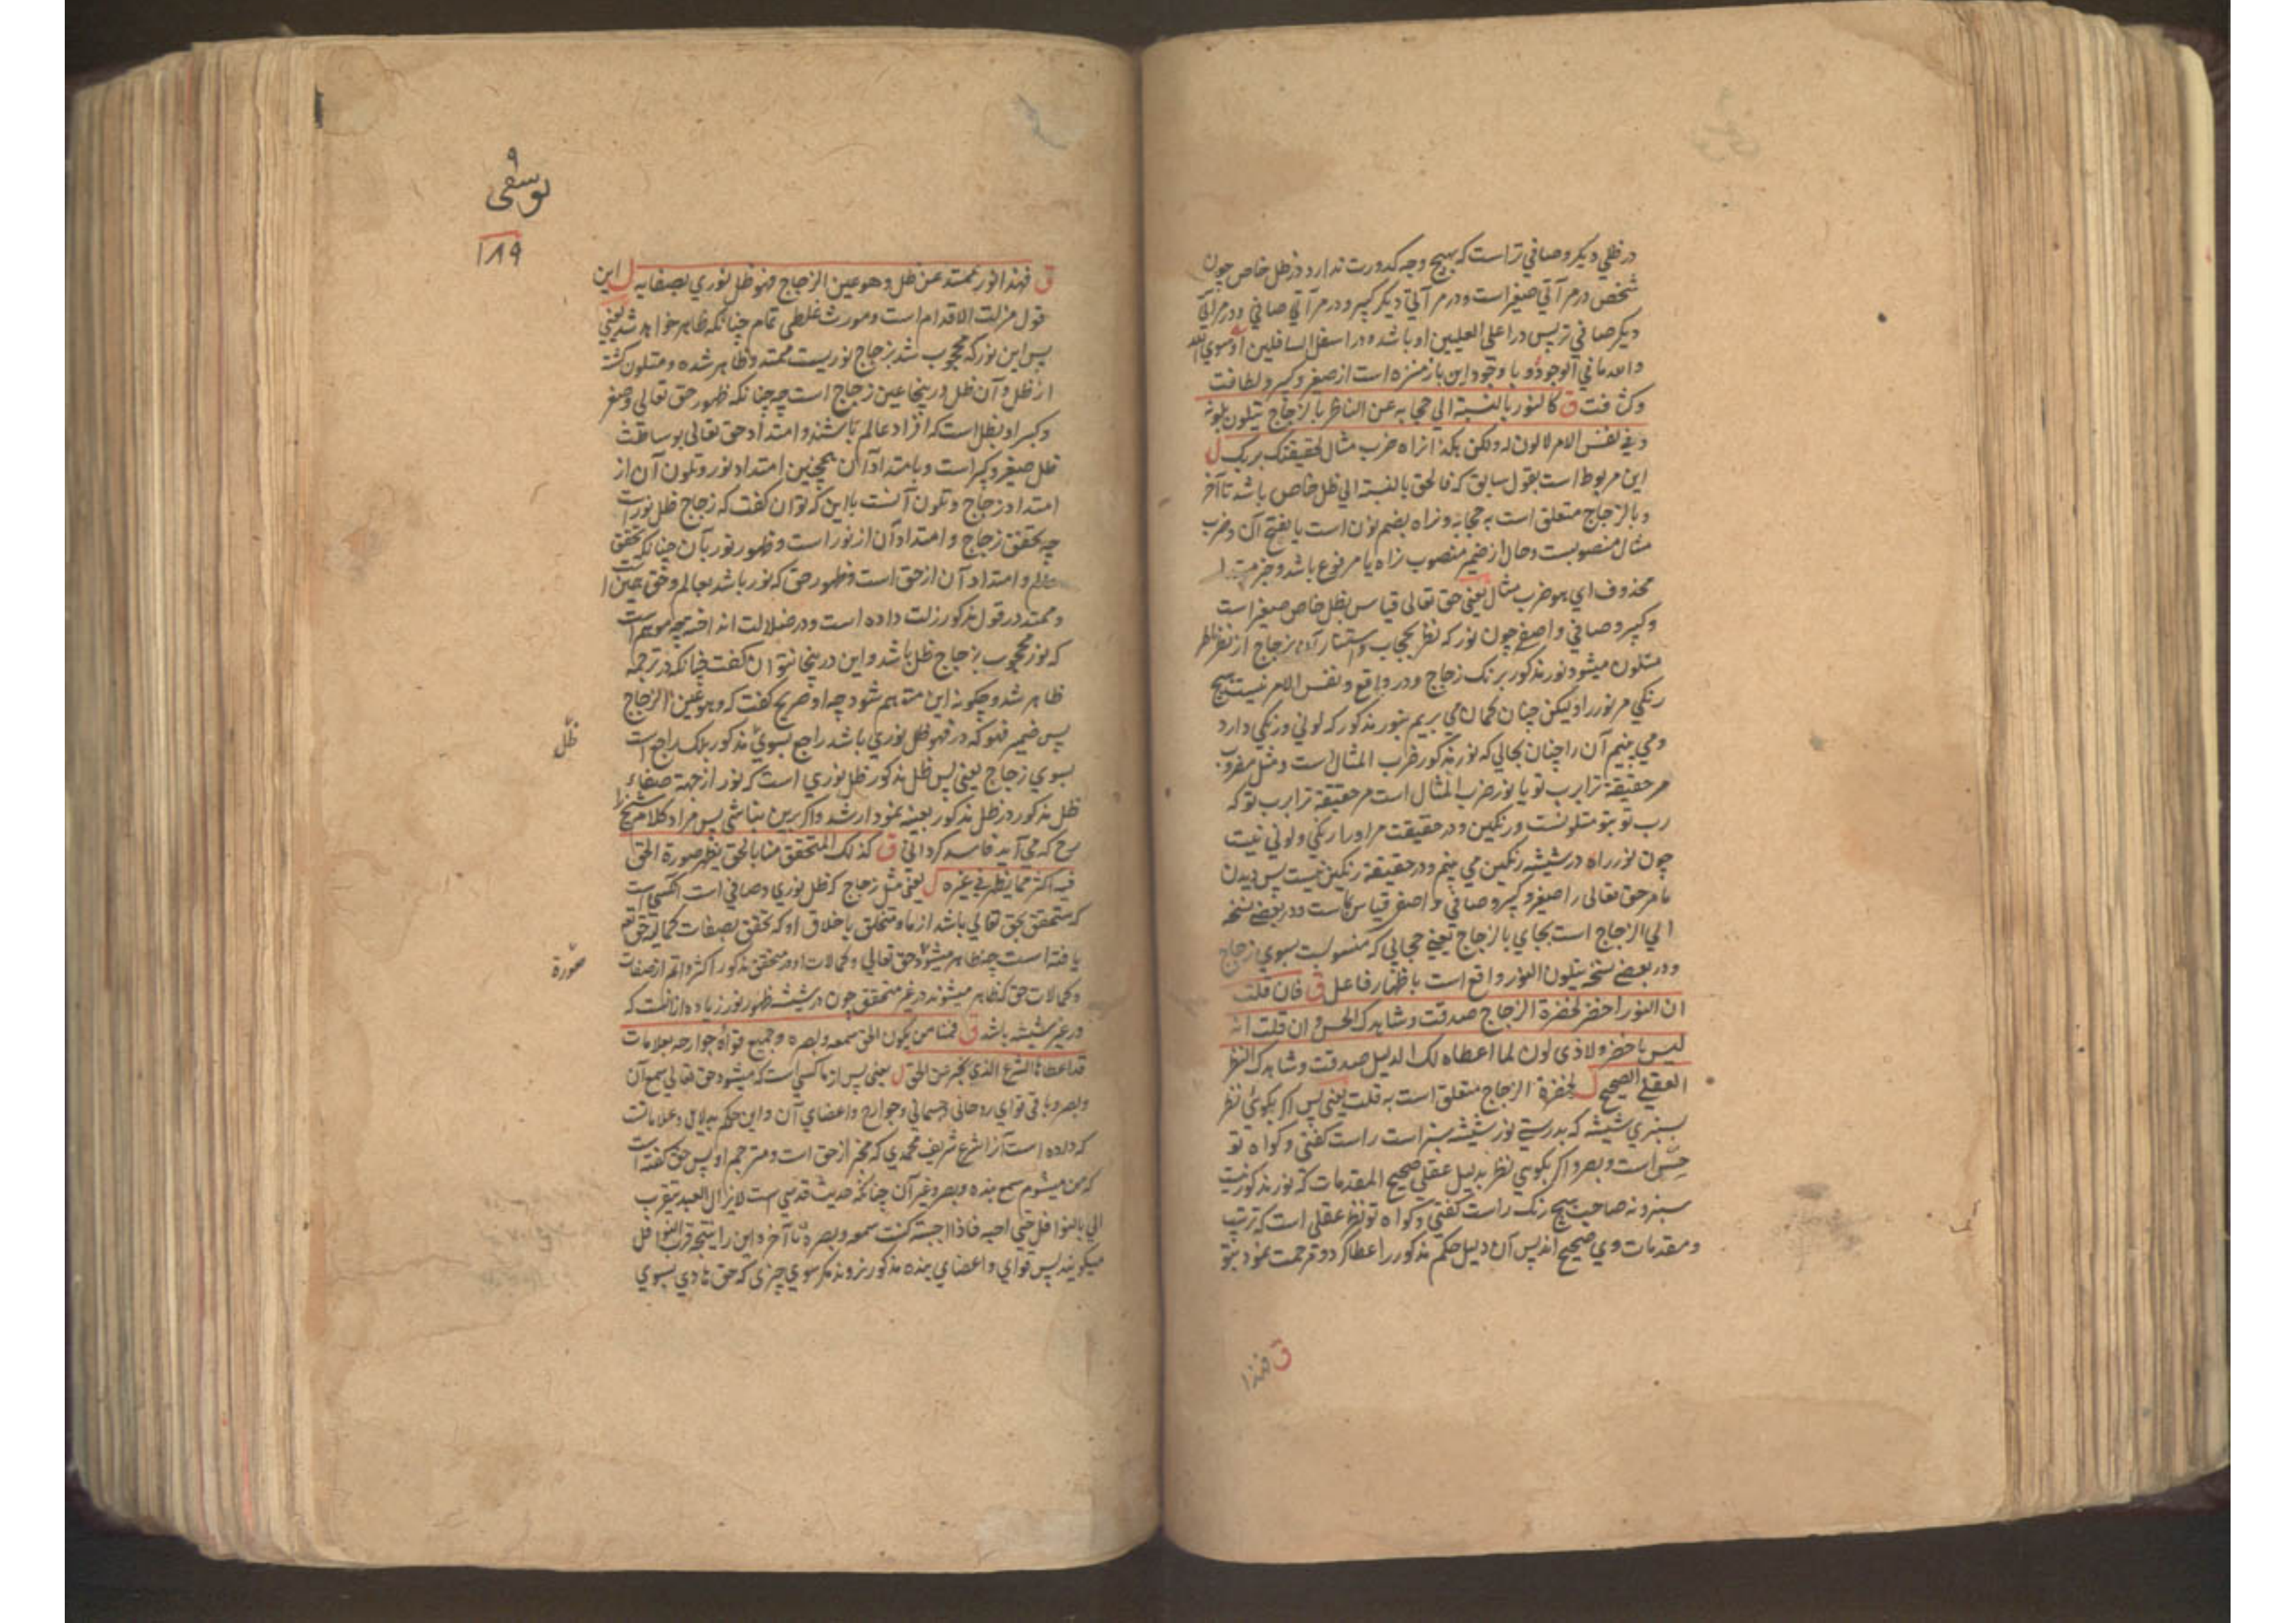 در ظلي ديكر و صافي تر است كه بهيچ وجه كدورت ندارد و در ظل خاص چون
شخص در مرآتي صغير است و در مرآتي ديكر كبير و در مرآتي صافي و در مرآتي
ديكر صافي تر پس در اعلى العليين او باشد و در اسفل السافلين او سوي الله
والله ما في الوجود و با وجود اين باز منزه است از صغر و كبر و لطافت
و كثافت ق كالنور بالنسبة الي حجابه عن الناظر بالزجاج يتلون بلونه
و في نفس الامر لا لون له ولكن هكذا تراه ضرب مثال لحقيقتك بربك ل
اين مربوط است بقول سابق كه فالحق بالنسبة الي ظل خاص باشد تا آخر
و بالزجاج متعلق است به حجابه و تراه بضم نون است يا بفتح آن و ضرب
مثال منصوبست و حال از ضمير منصوب تراه يا مرفوع باشد و خبر مبتدا
محذوف اي هو ضرب مثال يعني حق تعالى قياس بظل خاص صغير است
و كبير و صافي و اصفى چون نور كه نظر بحجاب و استتار آن بزجاج از نظر ناظر
متلون ميشود نور مذكور برنك زجاج و در واقع و نفس الامر نيست هيچ
رنكي مر نور را و ليكن چنان كمان مي بريم بنور مذكور كه لوني و رنكي دارد
و مي بينم آن را چنان بحالي كه نور مذكور ضرب المثال است و مثل مضروب
مر حقيقة ترا برب تو يا نور ضرب المثال است مر حقيقة ترا برب تو كه
رب تو بتو متلونست و رنكين و در حقيقت مر او را رنكي و لوني نيست
چون نور را كه در شيشه رنكين مي بينم و در حقيقة رنكين نيست پس ديدن
ما مر حق تعالى را صغير و كبير و صافي و اصفى قياس بماست و در بعضے نسخه
الي الزجاج است بجاي بالزجاج يعني حجابي كه منسوبست بسوي زجاج
و در بعضے نسخه يتلون النور واقع است باظهار فاعل ق فان قلت
ان النور اخضر لخضرة الزجاج صدقت و شاهدك الحس و ان قلت انه
ليس باخضر ولا ذي لون لما اعطاه لك الدليل صدقت و شاهدك النظر
العقلي الصحيح ل لخضرة الزجاج متعلق است به قلت يعني پس اكر بكوئي نظر
بسبزي شيشه كه بدرستي نور شيشه سبز است راست كفتي و كواه تو
حس است و بصر و اكر بكوئي نظر بدليل عقلي صحيح المقدمات كه نور مذكور نيست
سبز و نه صاحب هيچ رنك راست كفتي و كواه تو نظر عقلي است كه ترتيب
و مقدمات وي صحيح اند پس آن دليل حكم مذكور را عطا كرد و مرحمت نمود بتو
ق فهذا
يوسفى
۱۸۹
ق فهذا نور ممتد عن ظل و هو عين الزجاج فهو ظل نوري لصفايه ل اين
قول مزلت الاقدام است و مورث غلطي تمام چنانكه ظاهر خواهد شد يعني
پس اين نور كه محجوب شد بزجاج نوريست ممتد و ظاهر شده و متلون كشته
از ظل و آن ظل در ينجا عين زجاج است چه چنانكه ظهور حق تعالى و صغر
و كبر او بظل است كه افراد عالم باشند و امتداد حق تعالى بوساطت
ظل صغير و كبير است و بامتداد آن همچنين امتداد نور و تلون آن از
امتداد زجاج و تلون آنست با اين كه توان كفت كه زجاج ظل نور است
چه تحقق زجاج و امتداد آن از نور است و ظهور نور بآن چنانكه تحقق
عالم و امتداد آن از حق است و ظهور حق كه نور باشد بعالم
و ممتد در قول مذكور زلت داده است و در ضلالت انداخته چه موهم است
كه نور محجوب بزجاج ظل باشد و اين در ينجا نتوان كفت چنانكه در ترجمه
ظاهر شد و چكونه اين متوهم شود چه او صريح كفت كه و هو عين الزجاج
پس ضمير فهو كه در فهو ظل نوري باشد راجع بسوي مذكور بلكه راجع است
ظل
بسوي زجاج يعني پس ظل مذكور ظل نوري است كه نور از جهة صفاء
ظل مذكور در ظل مذكور بعينه نمودار شد و اكر برين نباشي پس مراد كلام شيخ را
كه مي آيد فاسد كرداني ق كذلك المتحقق منا بالحق يظهر صورة الحق
فيه اكثر مما يظهر في غيره ل يعني مثل زجاج كه ظل نوري و صافي است آنكسي است
كه متحقق بحق تعالي باشد از ما و متخلق باخلاق او كه تحقق بصفات كماليه حق تع
صورة
يافته است چه ظاهر ميشود حق تعالي و كمالات او در متحقق مذكور اكثر و اتم از صفات
و كمالات حق كه ظاهر ميشوند در غير متحقق چون در شيشه ظهور نور زياده از انست كه
در غير شيشه باشد ق فمنا من يكون الحق سمعه و بصره و جميع قواه و جوارحه بعلامات
قد اعطاها الشرع الذي يخبر عن الحق ل يعني پس از ما كسي است كه ميشود حق تعالي سمع آن
و بصر و باقي قواي روحاني و جسماني و جوارح و اعضاي آن و اين حكم بدلايل و علاماتست
كه داده است آنرا شرع شريف محمدي كه مخبر از حق است و مترجم او پس حق كفته است
كه من ميشوم سمع بنده و بصر و غير آن چنانكه حديث قدسي است لا يزال العبد يتقرب
الي بالنوافل حتي احبه فاذا احببته كنت سمعه و بصره تا آخر و اين را نتيجه قرب النوافل
ميكويند پس قواي و اعضاي بنده مذكور نروند مكر سوي چيزي كه حق هادي بسوي